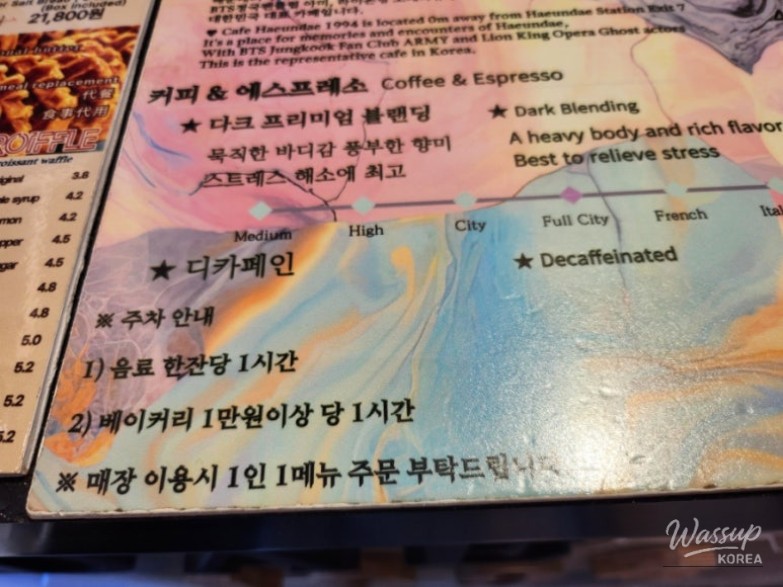 (Box included)
21,800원
meal replacement
代餐
食事代用
ROIFFLE
croissant waffle
3.8
syrup 4.2
4.2
4.5
4.5
4.8
4.8
5.0
5.2
5.2
5.2
대한민국 대표 카페입니다.
♥ Cafe Haeundae 1994 is located 0m away from Haeundae Station Exit 7
It's a place for memories and encounters of Haeundae,
With BTS Jungkook Fan Club ARMY and Lion King Opera Ghost actors
This is the representative cafe in Korea.
커피 & 에스프레소 Coffee & Espresso
★ 다크 프리미엄 블랜딩
묵직한 바디감 풍부한 향미
스트레스 해소에 최고
★ Dark Blending
A heavy body and rich flavor
Best to relieve stress
Medium High City Full City French
★ 디카페인 ★ Decaffeinated
※ 주차 안내
1) 음료 한잔당 1시간
2) 베이커리 1만원이상 당 1시간
※ 매장 이용시 1인 1메뉴 주문 부탁드립니다
Wassup
KOREA